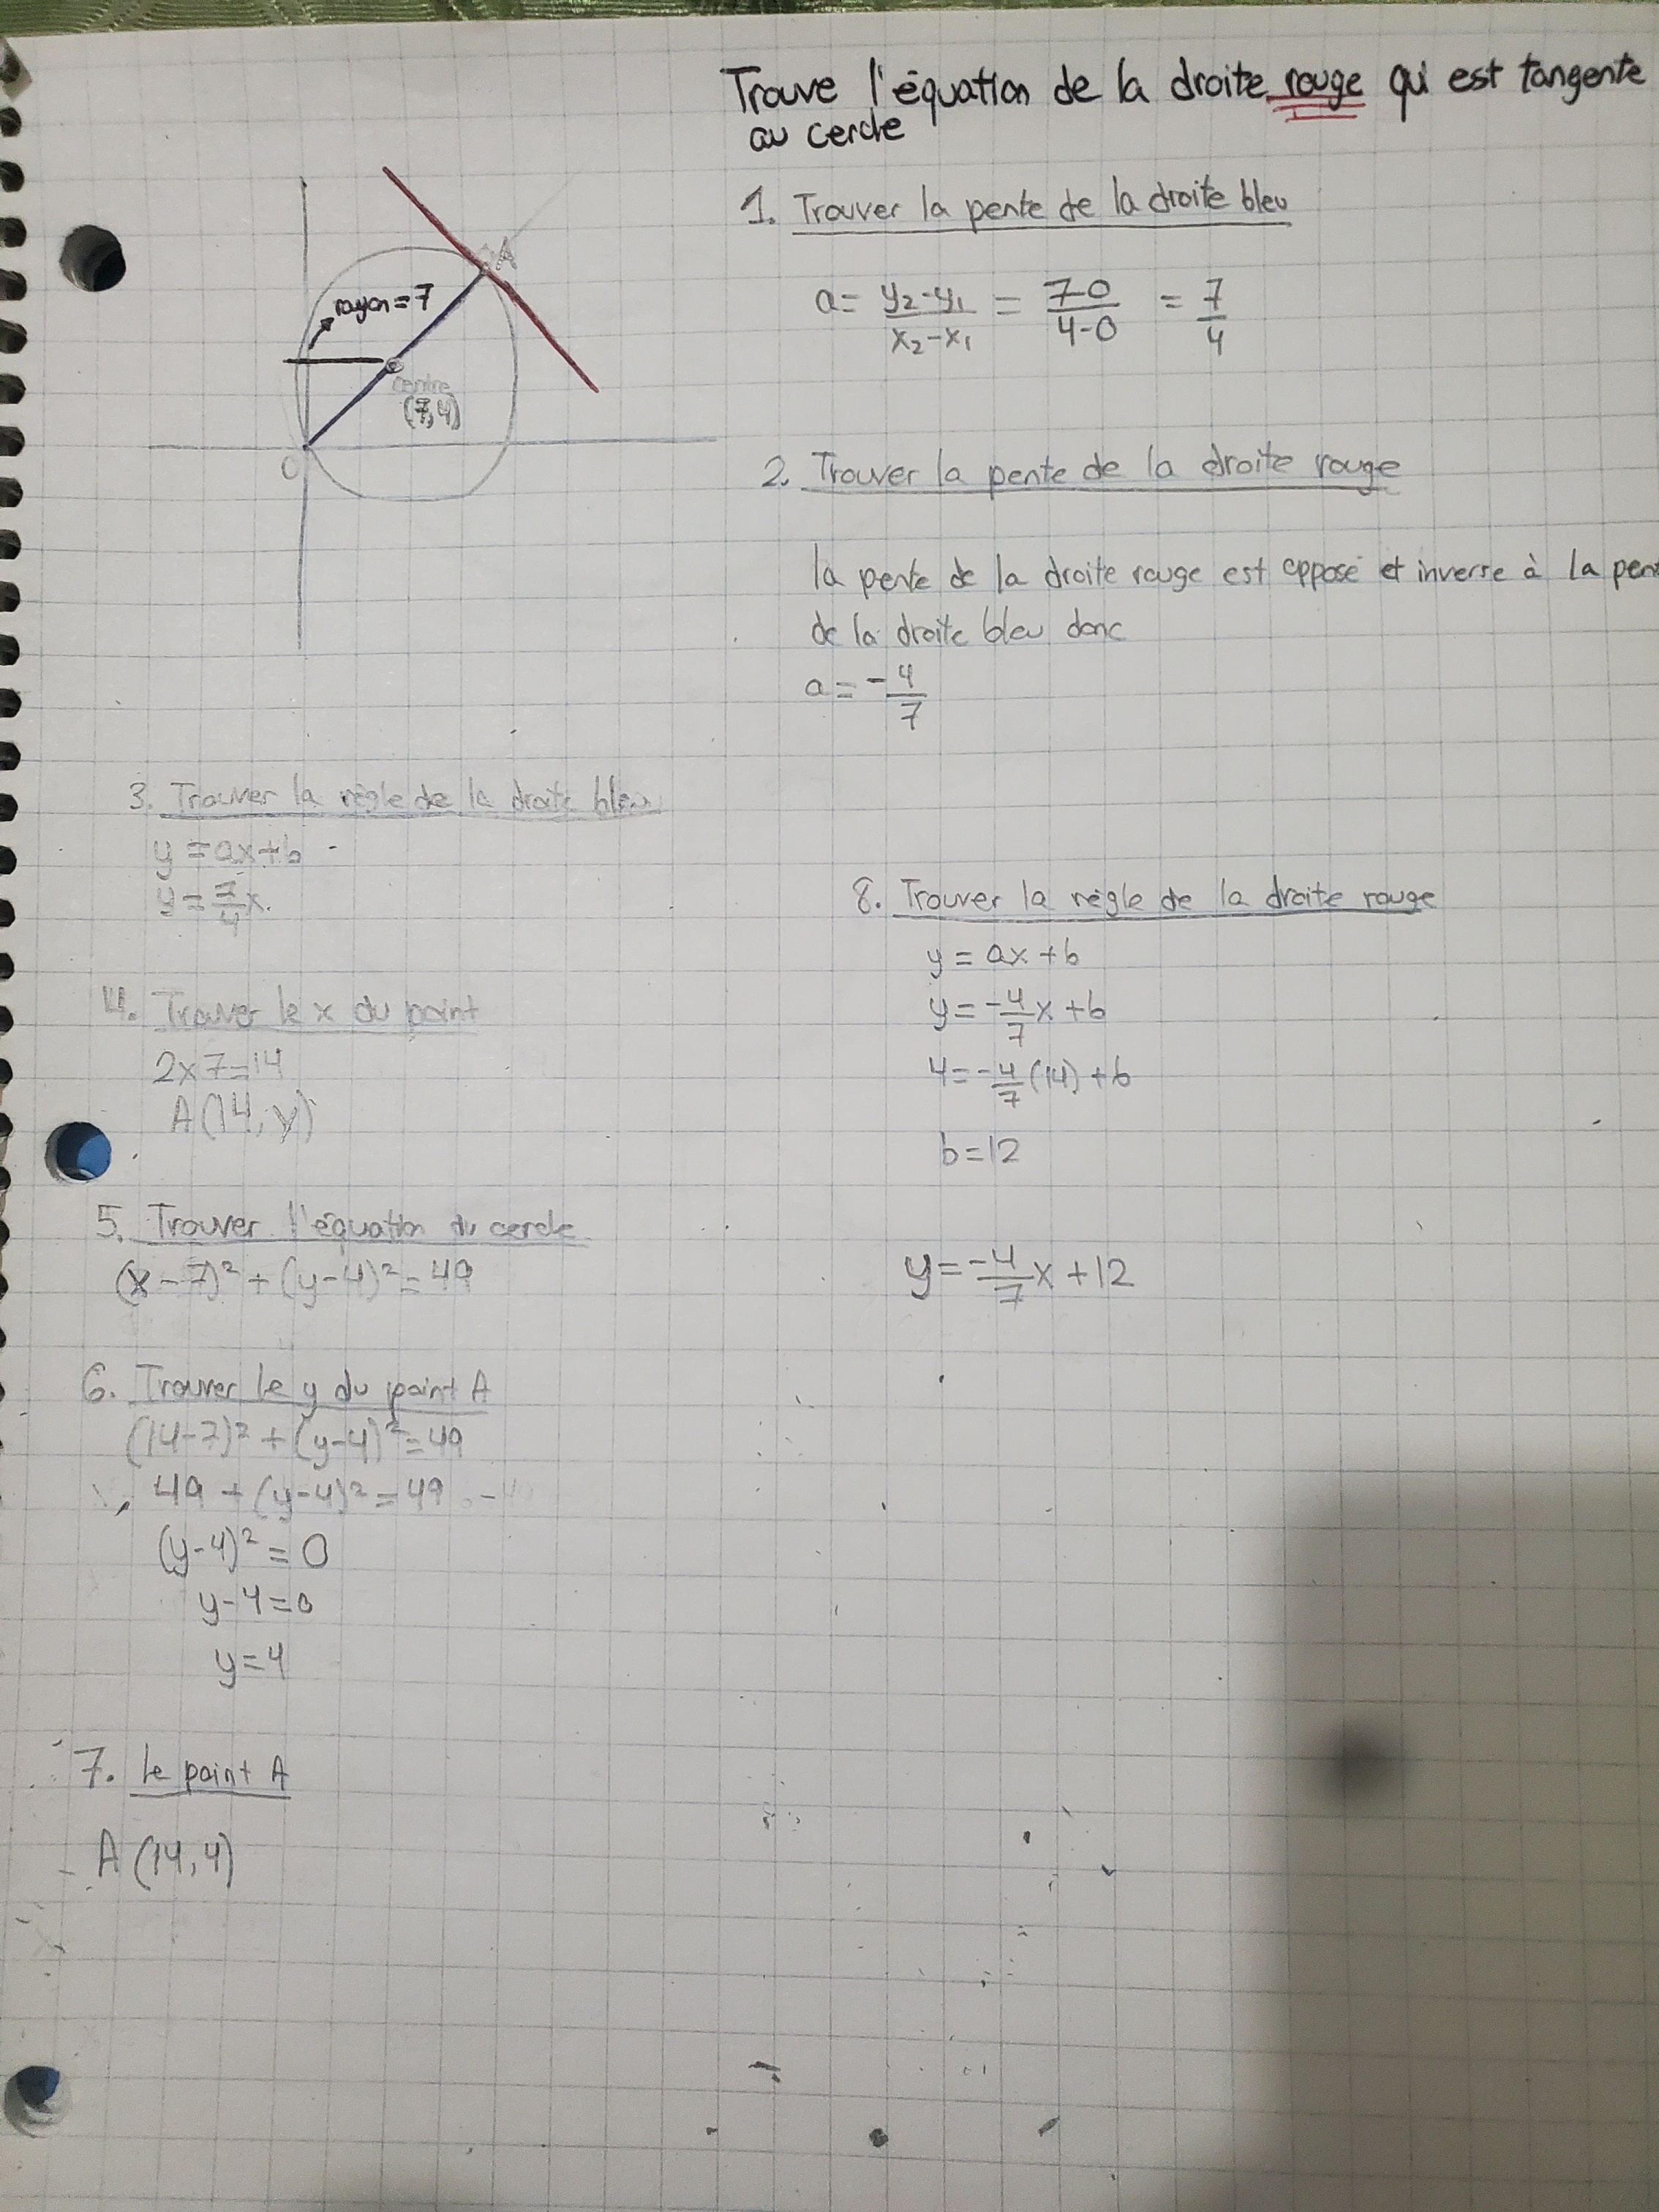 Trouve l'équation de la droite rouge qui est tangente
au cercle
rayon = 7
A
centre
(7,4)
O
1. Trouver la pente de la droite bleu
a = y₂-y₁ / x₂-x₁ = 7-0 / 4-0 = 7/4
2. Trouver la pente de la droite rouge
la pente de la droite rouge est opposé et inverse à la
de la droite bleu donc
a = -4/7
3. Trouver la règle de la droite bleu
y = ax+b
y = 7/4 x
4. Trouver le x du point
2x7=14
A(14, y)
5. Trouver l'équation du cercle
(x-7)² + (y-4)² = 49
6. Trouver le y du point A
(14-7)² + (y-4)² = 49
49 + (y-4)² = 49
(y-4)² = 0
y-4=0
y=4
7. Le point A
A (14,4)
8. Trouver la règle de la droite rouge
y = ax+b
y = -4/7 x + b
4 = -4/7 (14) + b
b=12
y = -4/7 x + 12